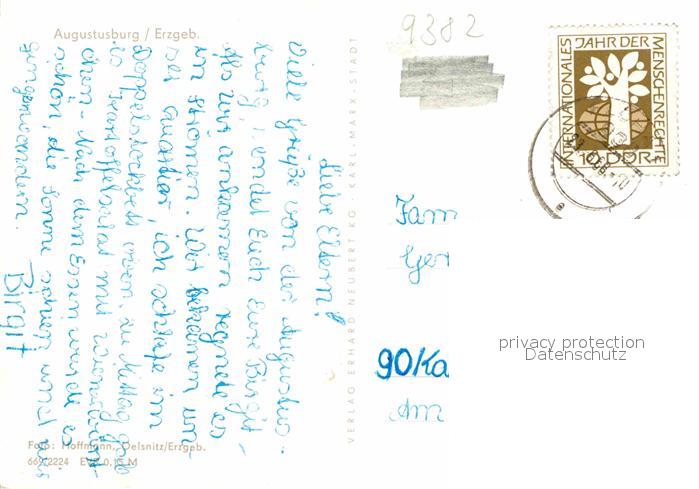 Augustusburg / Erzgeb.
9382
INTERNATIONALES
JAHR DER
MENSCHENRECHTE
10 DDR
Liebe Eltern!
Viele Grüße von der Augustus-
burg, sendet Euch Eure Birgit.
Als wir ankamen regnete es
in Strömen. Wir bekamen un-
ser Quartier, ich schlafe im
Doppelstockbett oben, zu Mittag gab
es Kartoffelsalat mit
chen. Nach dem Essen wurde es
schön, die Sonne schien und wir
gingen wandern.
Birgit
VERLAG ERHARD NEUBERT KG, KARL-MARX-STADT
Fam
Ger
90Ka
Am
privacy protection
Datenschutz
Foto: Hoffmann, Oelsnitz/Erzgeb.
669/2224 EVP 0,15 M